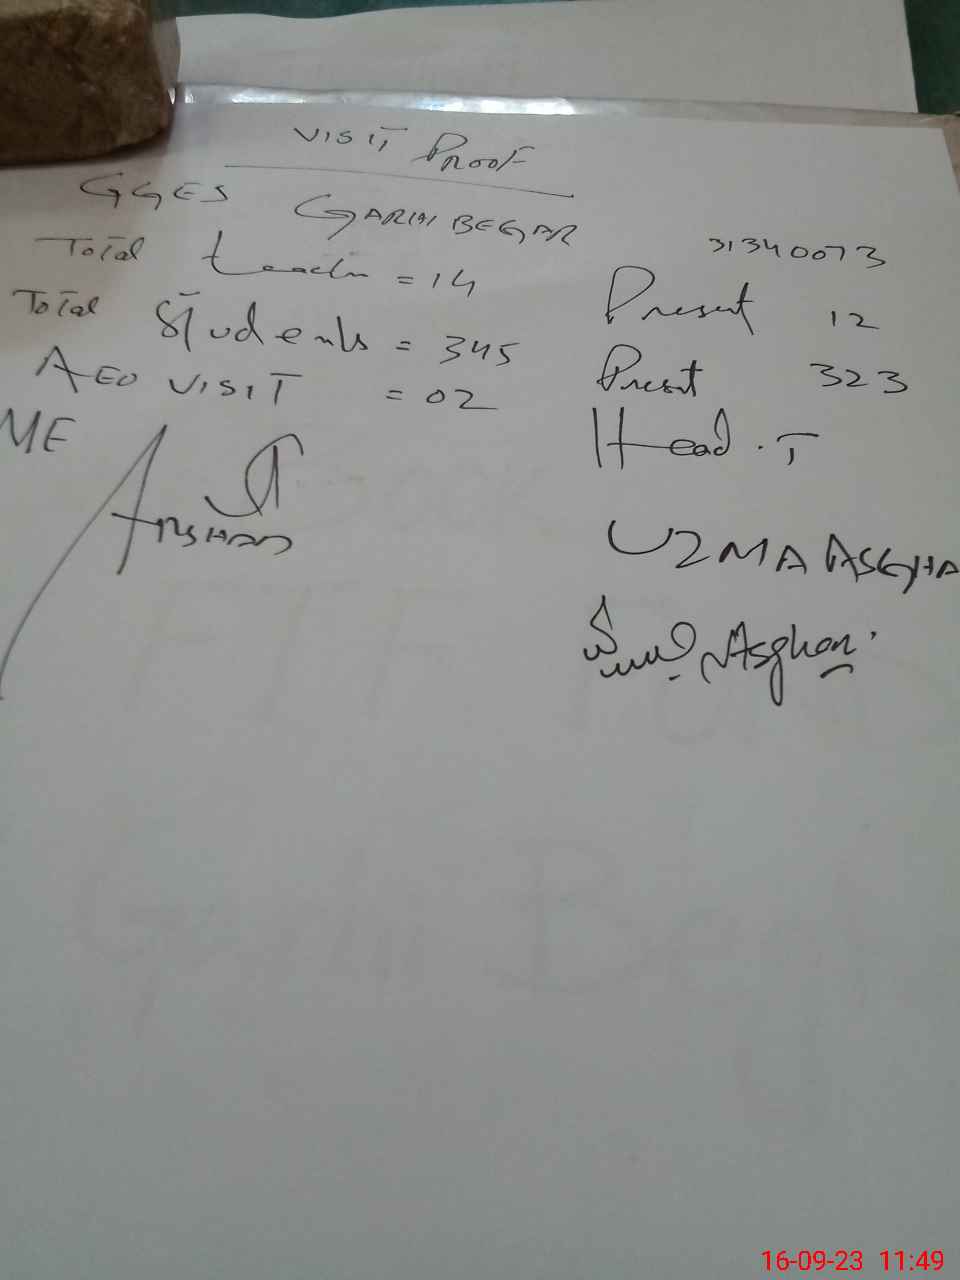 VISIT PROOF
GGES GARHI BEGAR 31340073
Total teacher = 14 Present 12
Total Students = 345 Present 323
AEO VISIT = 02 Head . T
ME
ARSHAD UZMA ASGHA
Asghar.
16-09-23 11:49